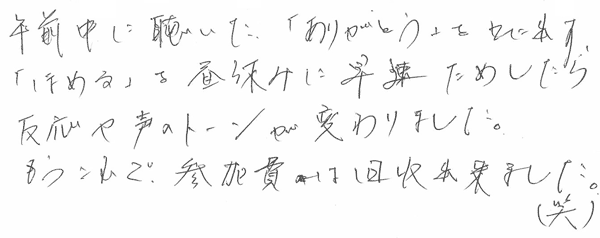 午前中に聴いた「ありがとう」を口に出す
「ほめる」を昼休みに早速ためしたら
反応や声のトーンが変わりました。
もうこれで、参加費は回収出来ました。
(笑)